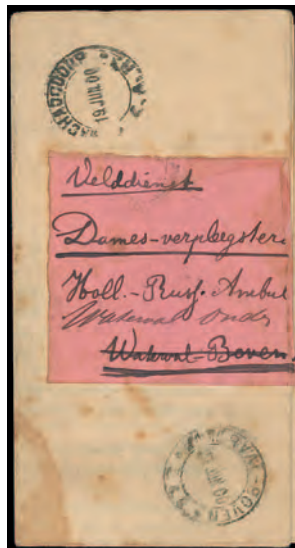 MACHADODORP Z.A.R.
19 JUN.00
Velddienst
Dames-verpleegsters
Holl.-Russ. Ambul
Waterval Onder
Waterval-Boven.
BOVEN